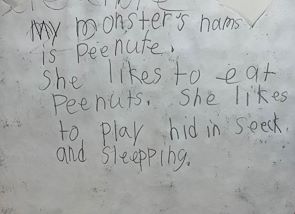 My monster's name
is Peenute.
She likes to eat
Peenuts. She likes
to play hid in seeck.
and sleepping.